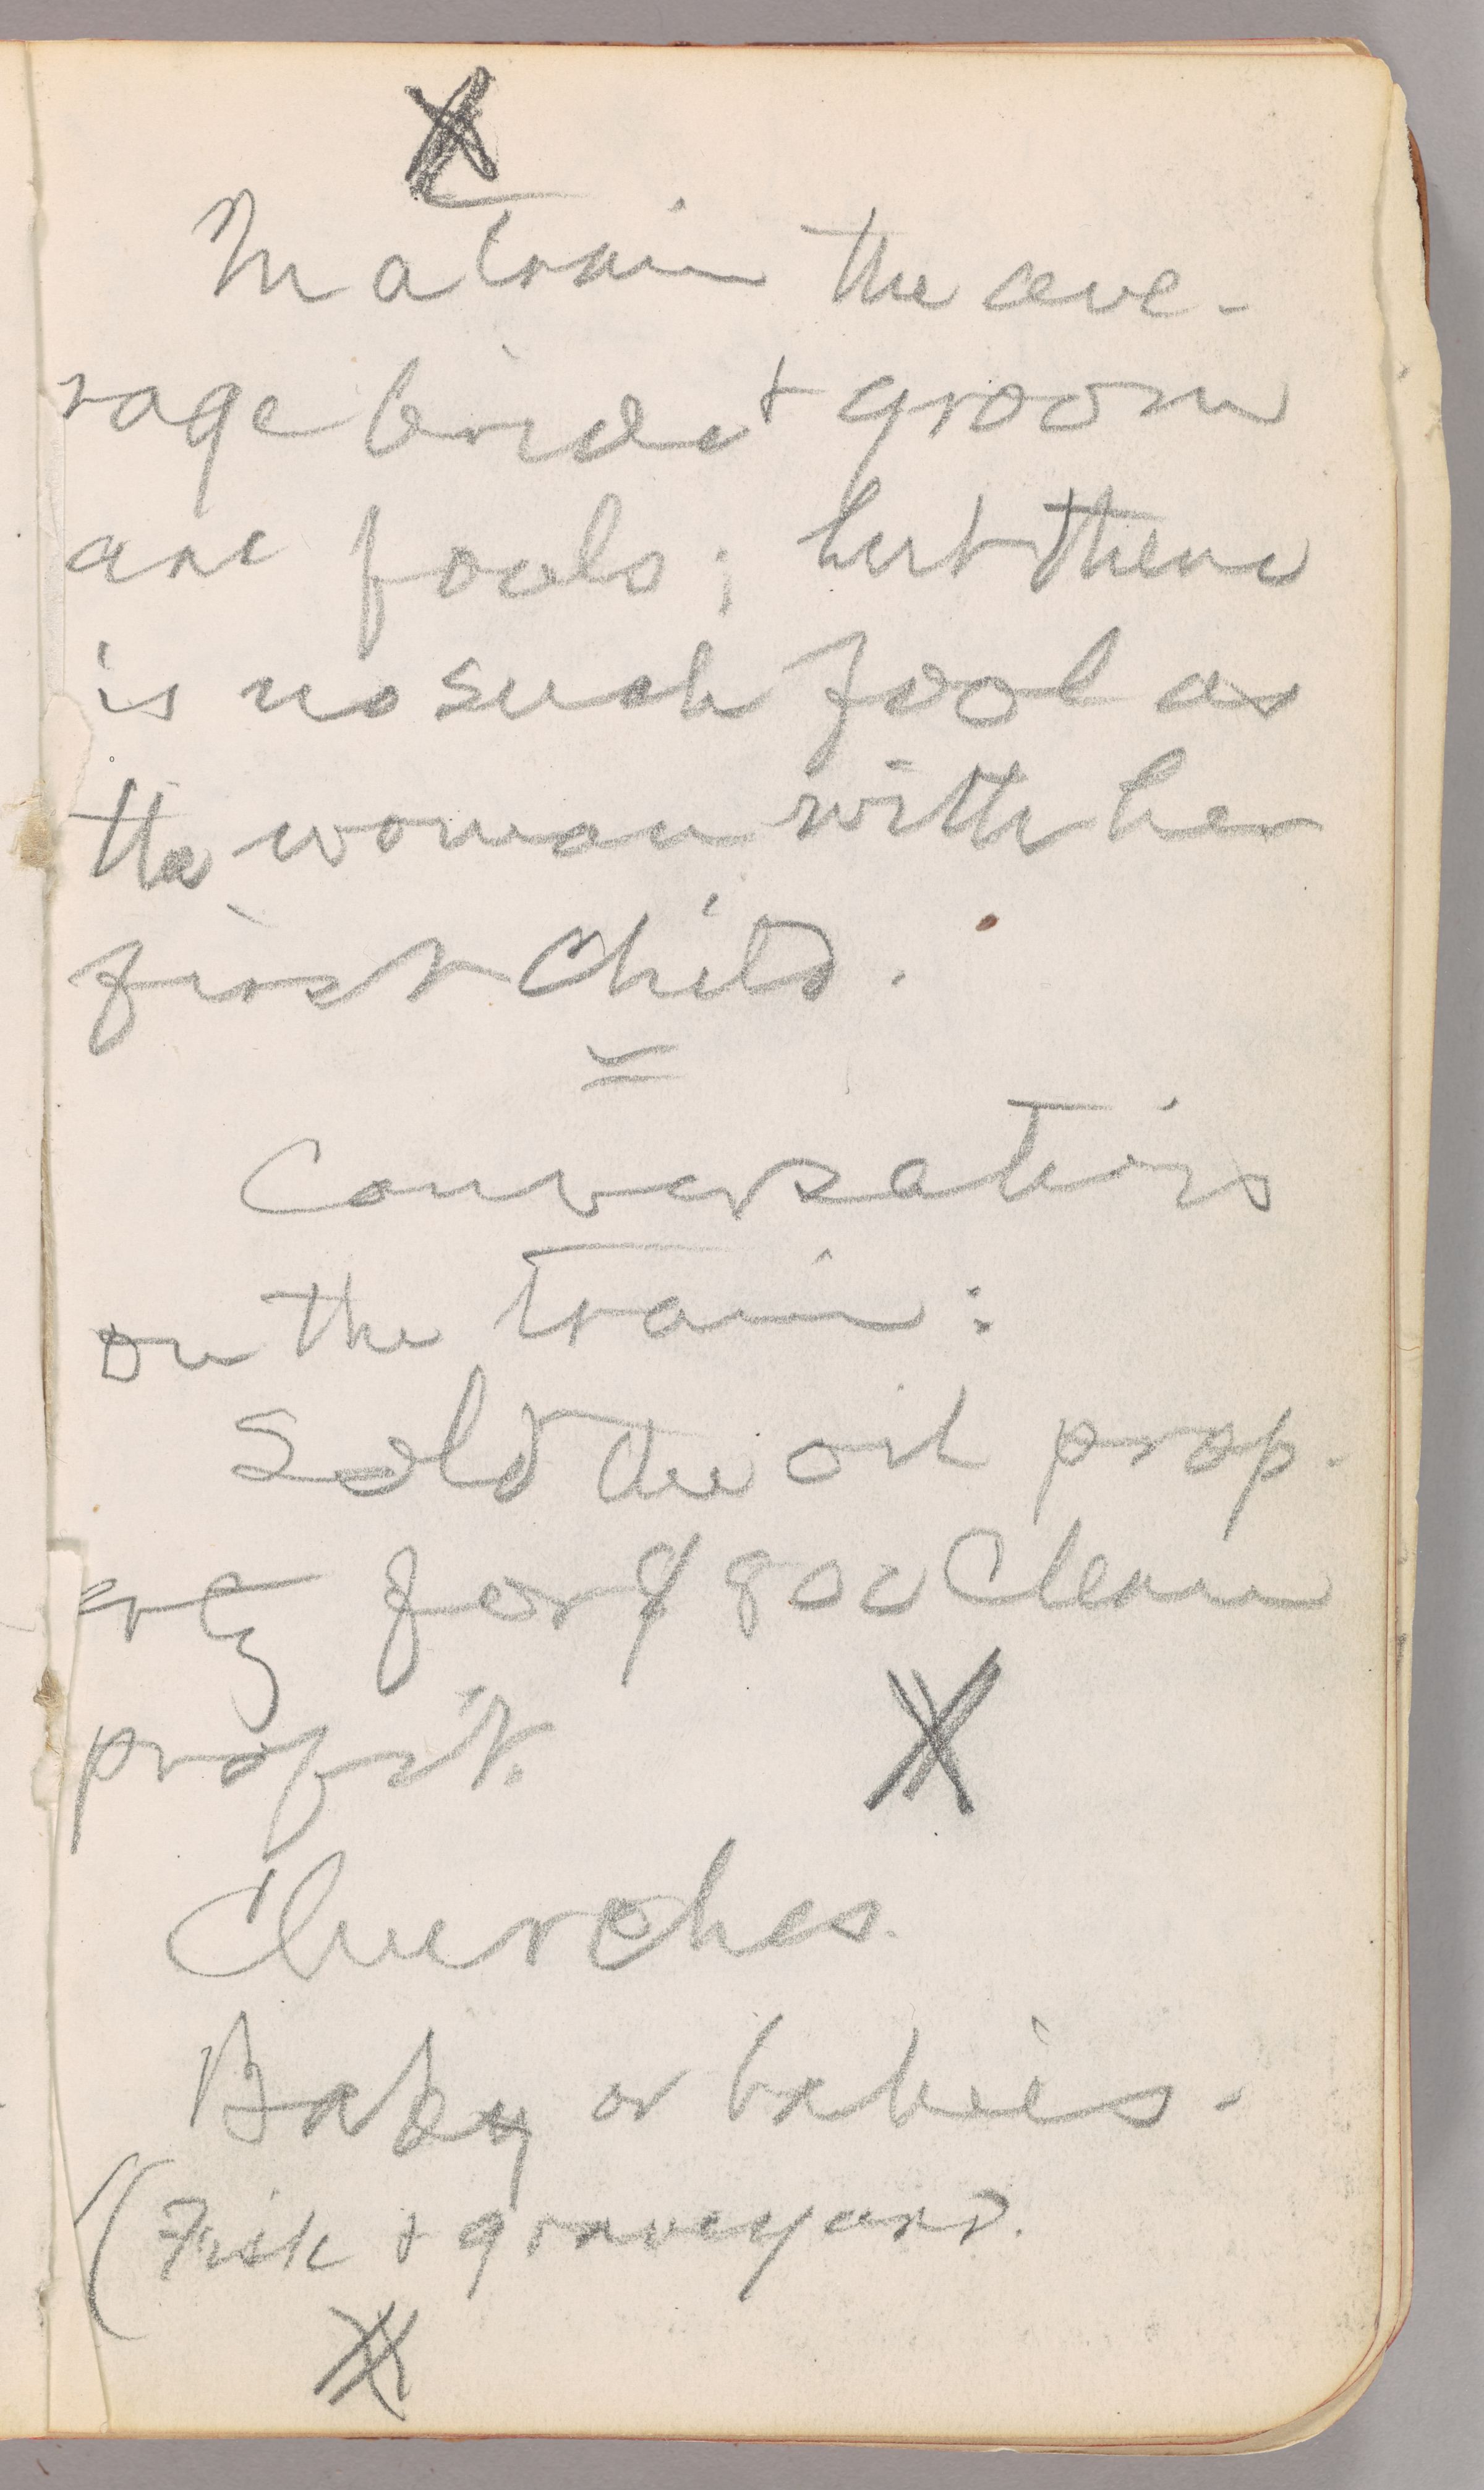 In a train the ave-
rage bride & groom
are fools; but there
is no such fool as
the woman with her
first child.
=
Conversations
on the train:
Sold the oil prop-
erty for $900 clean
profit.
Churches.
Baby or babies.
(Fisk & graveyard.